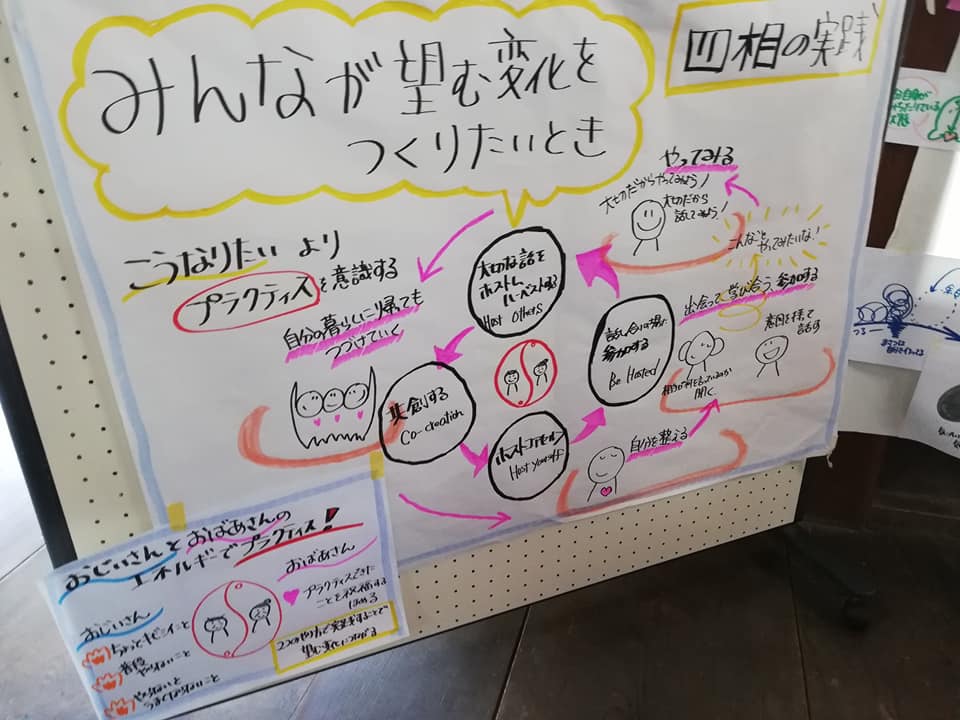 みんなが望む変化を
つくりたいとき
四相の実践
こうなりたい より
プラクティスを意識する
自分の暮らしに帰ても
つづけていく
大切な話を
ホストし
ハーベストする
Host Others
話し合いの場に
参加する
Be Hosted
ホストユアセルフ
Host yourself
共創する
Co-creation
やってみる
大切だからやってみよう!
大切だから
話してみよう!
こんなことやってみたいな!
出会って学び合う、参加する
意図を持て
話す
聞く
自分を整える
おじいさんとおばあさんの
エネルギーでプラクティス!
おじいさん
ちょっとキビシイこと
普段
やらないこと
やらないと
うまくならないこと
おばあさん
プラクティスできた
ことを祝福する
ほめる
2つのやり方で実践することで
望む変化につながる